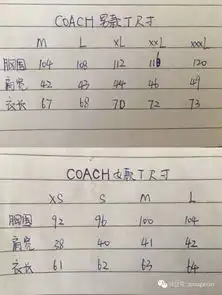 COACH 男款T尺寸
M L XL XXL XXXL
胸围 104 108 112 116 120
肩宽 42 43 44 46 49
衣长 67 68 70 72 73
COACH 女款T尺寸
XS S M L
胸围 92 96 100 104
肩宽 38 40 41 42
衣长 61 62 63 64